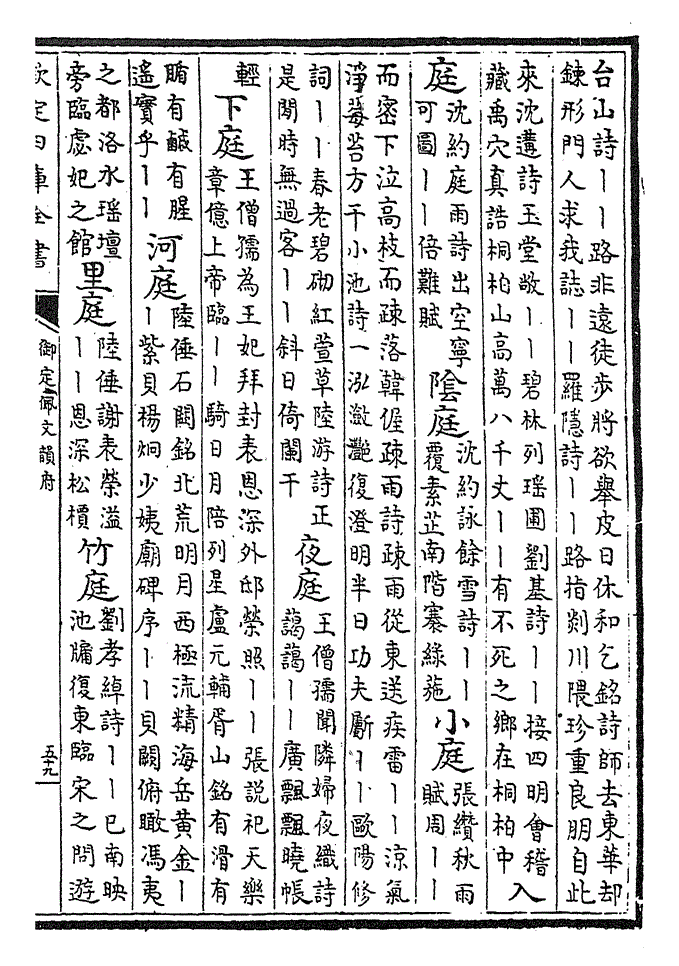 台山詩〡〡路非遠徒步將欲舉皮日休和乞銘詩師去東華却
鍊形門人求我誌〡〡羅隱詩〡〡路指剡川隈珍重良朋自此
來沈遘詩玉堂敞〡〡碧林列瑶圃劉基詩〡〡接四明會稽
藏禹穴真誥桐柏山高萬八千丈〡〡有不死之鄉在桐柏中
入
庭
沈約庭雨詩出空寧
可圖〡〡倍難賦
陰庭
沈約詠餘雪詩〡〡
覆素芷南階褰綠葹
小庭
張纘秋雨
賦周〡〡
而密下泣高枝而疎落韓偓疎雨詩疎雨從東送疾雷〡〡涼氣
淨莓苔方干小池詩一泓瀲灧復澄明半日功夫劚〡〡歐陽修
詞〡〡春老碧砌紅萱草陸游詩正
是閒時無過客〡〡斜日倚闌干
夜庭
王僧孺聞隣婦夜織詩
藹藹〡〡廣飄飄曉帳
輕
下庭
王僧孺為王妃拜封表恩深外邸榮照〡〡張說祀天樂
章億上帝臨〡〡騎日月陪列星盧元輔胥山銘有滑有
腯有鹹有腥
遥實乎〡〡
河庭
陸倕石闕銘北荒明月西極流精海岳黄金〡
〡紫貝楊炯少姨廟碑序〡〡貝闕俯瞰馮夷
之都洛水瑶壇
旁臨虙妃之館
里庭
陸倕謝表榮溢
〡〡恩深松檟
竹庭
劉孝綽詩〡〡已南映
池牖復東臨宋之問遊
欽定四庫全書
御定佩文韻府
五十九